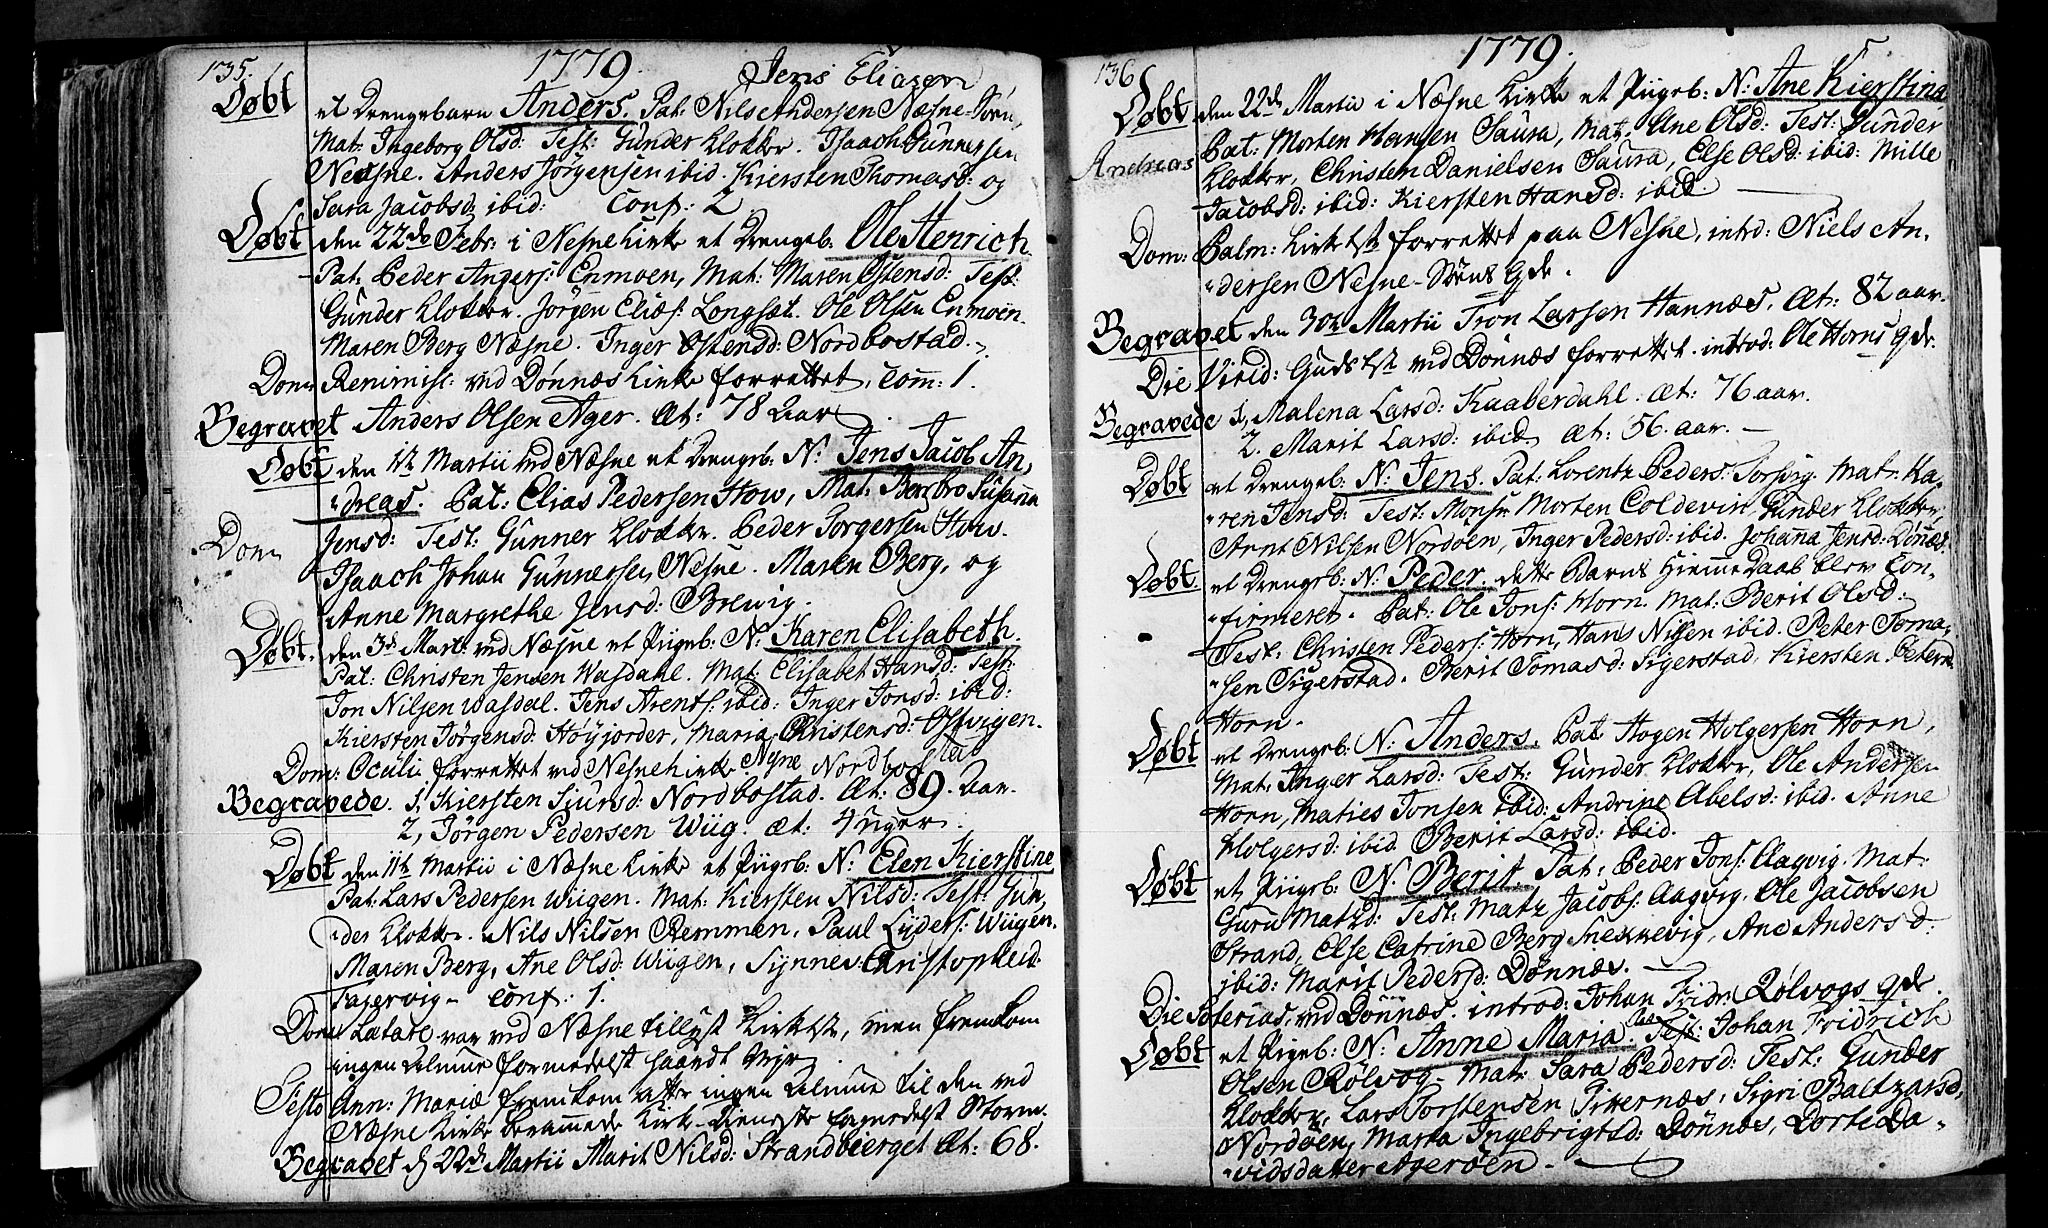 135.
1779.
Jens Eliasen
Døbt et Drengebarn Anders. Pat: Nils Andersen Næsne-Søen,
Mat: Ingeborg Olsd: Test: Gunder Klokker. Isaach Gunnersen
Nesne. Anders Jørgensen ibid. Kiersten Thomasd: og
Sara Jacobsd: ibid: Conf: 2
Døbt den 22de Febr: i Nesne Kirke et Drengeb: Ole Henrich
Pat: Peder Angers: Enmoen, Mat: Maren Ostensd: Test:
Gunder Klokker. Jørgen Elias: Longset. Ole Olsen Enmoen.
Maren Berg Næsne. Inger Ostensd: Nordbostad.
Dom: Reminisc: ved Dønnæs Kirke forrettet, Com: 1.
Begravet Anders Olsen Ager. Æt: 78 Aar
Døbt den 1te Martii ved Næsne et Drengeb: N: Jens Jacob An,
"dreas. Pat: Elias Pedersen How, Mat: Berebro Susanna
Jensd: Test: Gunner Klokker. Peder Jørgersen How.
Dom
Isaach Johan Gunnersen Nesne. Maren Berg, og
Anne Margrethe Jensd: Brewig.
Døbt. den 3de Mart: ved Næsne et Piigeb: N: Karen Elisabeth.
Pat: Christen Jensen Wasdahl. Mat: Elisabet Hansd: Test:
Jon Nilsen Wasdal. Jens Arents: ibid: Inger Jonsd: ibid:
Kiersten Jørgensd: Høyjorder, Maria Christensd: Ostvigen.
Dom: Oculi forrettet ved Nesne Kirke Nyne Nordbostad
Begravede. 1, Kiersten Siursd: Nordbostad. Æt: 89. Aar.
2, Jørgen Pedersen Wiig. æt: 4 uger.
Døbt den 11te Martii i Næsne Kirke et Piigeb: N: Elen Kierstine
Pat: Lars Pedersen Wiigen. Mat: Kiersten Nilsd: Test: Gun,
"der Klokker. Nils Nilsen Remmen, Paul Lyders: Wiigen.
Maren Berg, Ane Olsd: Wiigen, Synnev: Christophersd:
Fagervig- Conf: 1.
Dom Lætare var ved Næsne tillyst Kirket, men fremkom
ingen Almue formedelst haardt Vejr
Festo Ann: Mariæ fremkom atter ingen Almue til den ved
Næsne Kirke berammede Kirke-Tieneste formedelst Storm.
Begravet d 22de Martii Marit Nilsd: Strandbierget Æt: 68.
136
1779.
Døbt den 22de Martii i Næsne Kirke et Piigeb: N: Ane Kierstina
Andreas Pat: Morten Hansen Saura, Mat: Ane Olsd: Test: Gunder
Klokker, Christen Danielsen Saura, Else Olsd: ibid: Mille
Jacobsd: ibid: Kiersten Hansd: ibid.
Dom: Palm: Kirket forrettet paa Nesne, introd: Niels An,
"dersen Nesne-Søens Qde.
Begravet den 30te Martii Tron Larsen Hannæs. Æt: 82 aar.
Die Virid: Gudst ved Dønnæs forrettet. introd: Ole Horns qde.
Begravede 1, Malena Larsd: Kaaberdahl. æt: 76 aar.
2. Marit Larsd: ibid. æt: 56. aar.
Døbt et Drengeb: N: Jens. Pat: Lorentz Peders: Sorsvig. Mat: Ka-
"ren Jensd: Test: Monsr Morten Coldevin, Gunder Klokker,
Arnt Nilsen Nordøen, Inger Pedersd: ibid. Johanna Jensd: Dønæs:
Døbt et Drengeb: N: Peder. dette Barns HiemmeDaab blev Con-
"firmeret. Pat: Ole Jons: Horn. Mat: Berit Olsd:
Test: Christen Peders: Horn, Hans Nilsen ibid. Peter Toma,
"sen Sigerstad. Berit Tomasd: Sigerstad, Kiersten Petersd:
Horn.
Døbt et Drengeb: N: Anders. Pat: Hogen Holgersen Horn,
Mat: Inger Larsd: Test: Gunder Klokker, Ole Andersen
Horn, Maties Jonsen ibid: Andrine Abelsd: ibid. Anne
Holgersd: ibid Berit Larsd: ibid.
Døbt et Piigeb: N: Berit. Pat: Peder Jons: Aagvig. Mat:
Guru Matzd: Test: Matz Jacobs: Aagvig. Ole Jacobsen
Strand, Else Catrine Berg Snekkevig, Ane Andersd:
ibid: Marit Pedersd: Dønnæs.
Die Soterias, ved Dønnæs. introd: Johan Fridr: Rølvogs qde.
Døbt et Pigeb: N: Anne Maria. Pat: Test: Johan Fridrich
Olsen Rølvog. Mat: Sara Pedersd: Test: Gunder
Klokker, Lars Torstensen Pikernæs, Sigri Baltzarsd,
Nordøen, Marta Ingebrigtsd: Dønnæs, Dorte Da-
"vidsdatter Agerøen.